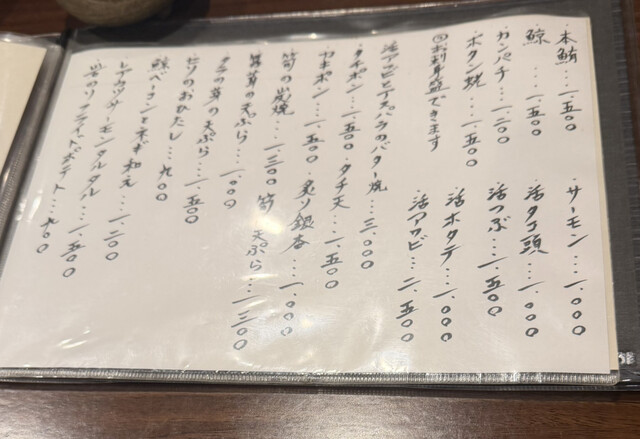 ・本鮪…一、五〇〇
・サーモン…一、〇〇〇
・鯨…一、五〇〇
・活タコ頭…一、〇〇〇
・カンパチ…一、二〇〇
・活つぶ…一、五〇〇
・ボタン蛯…一、五〇〇
・活ホタテ…一、〇〇〇
お刺身盛できます
・活アワビ…二、五〇〇
活アワビとアスパラのバター焼…三、〇〇〇
・タチポン…一、五〇〇
・タチ天…一、五〇〇
・カキポン…一、五〇〇
・炙り銀杏…一、〇〇〇
・筍の炭焼…一、三〇〇
筍の天ぷら…一、三〇〇
の天ぷら…一、〇〇〇
・タラの芽の天ぷら…一、五〇〇
・セリのおひたし…九〇〇
・鯨ベーコンとネギ和え…一、二〇〇
・レアカツサーモンタルタル…一、五〇〇
のフライドポテト…九〇〇